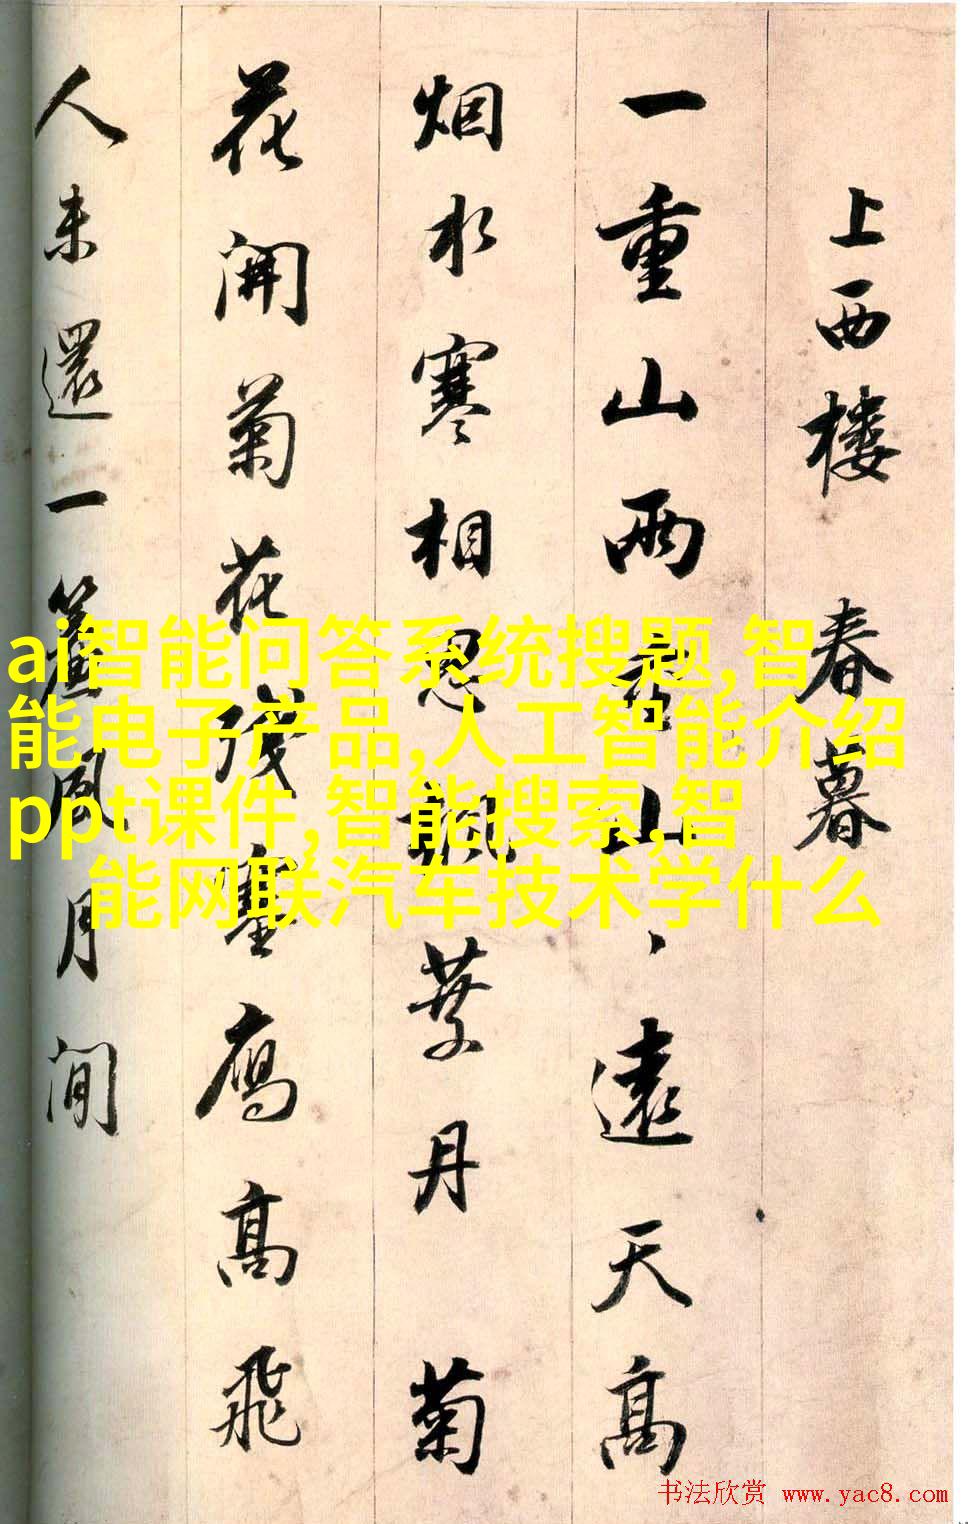 上西楼 春暮
一重山両重山、遠天高
烟水寒相思楓葉丹 菊
花開菊花残塞鴈高飛
人未還一簾風月閒
ai智能问答系统搜题,智
能电子产品,人工智能介绍
ppt课件,智能搜索.智
能网联汽车技术学什么
书法欣赏 www.yac8.com